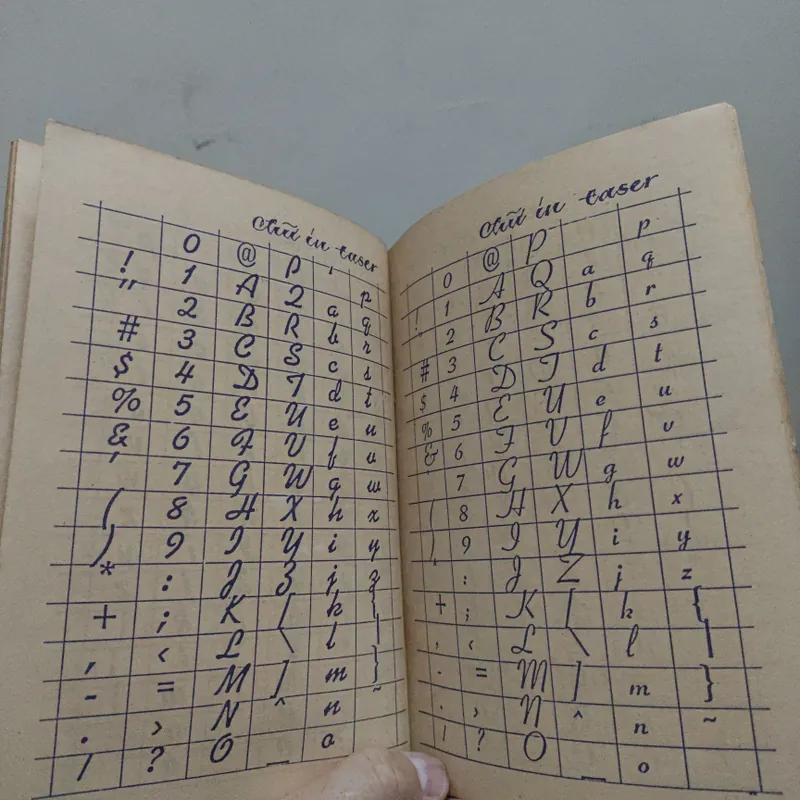 chữ in easer
0 @ P '
! 1 A Q a p
" 2 B R b q
# 3 C S c r
$ 4 D T d s
% 5 E U e t
& 6 F V f u
' 7 G W g v
( 8 H X h w
) 9 I Y i x
* : J Z j y
+ ; K [ k z
, < L \ l {
- = M ] m |
. > N ^ n }
/ ? O _ o ~
chữ in easer
0 @ P p
! 1 A Q a q
2 B R b r
# 3 C S c s
$ 4 D T d t
% 5 E U e u
& 6 F V f v
7 G W g w
( 8 H X h x
) 9 I Y i y
: J Z j z
+ ; K [ k {
, < L \ l |
- = M ] m }
. > N ^ n ~
/ ? O _ o